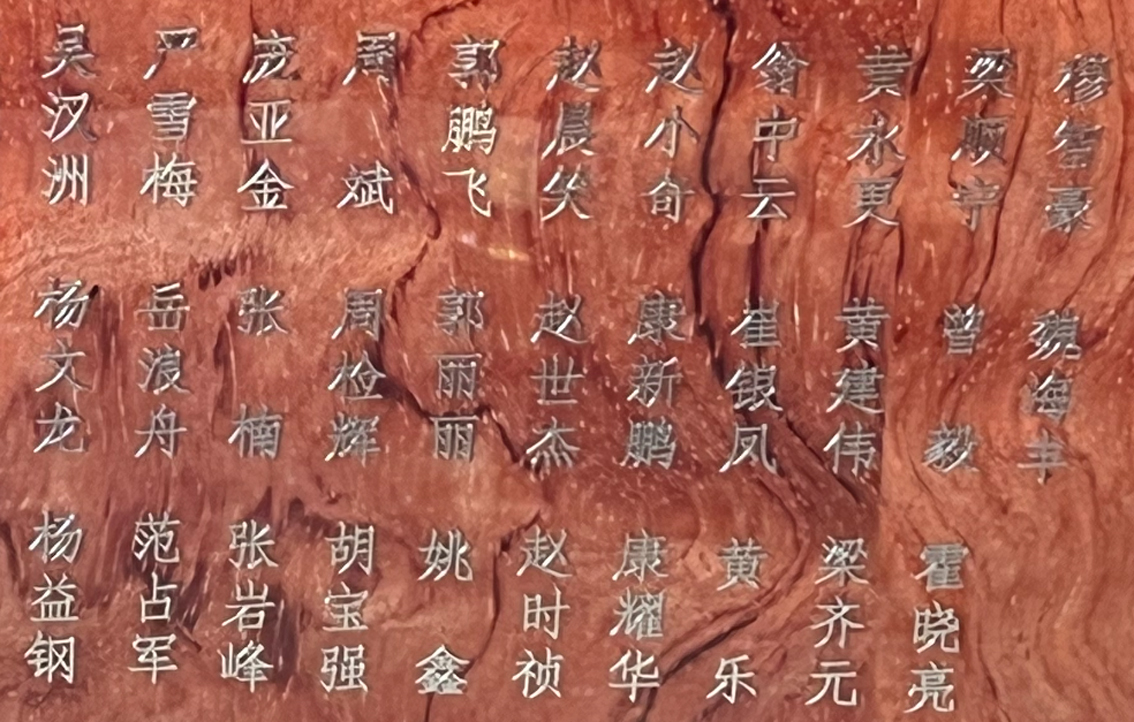 吴汉洲
严雪梅
庞亚金
周斌
郭鹏飞
赵晨笑
赵小奇
翁中云
黄永更
梁顺宇
穆智豪
杨文龙
岳浪舟
张楠
周检辉
郭丽丽
赵世杰
康新鹏
崔银凤
黄建伟
曾毅
魏海丰
杨益钢
范占军
张岩峰
胡宝强
姚鑫
赵时祯
康耀华
黄乐
梁齐元
霍晓亮